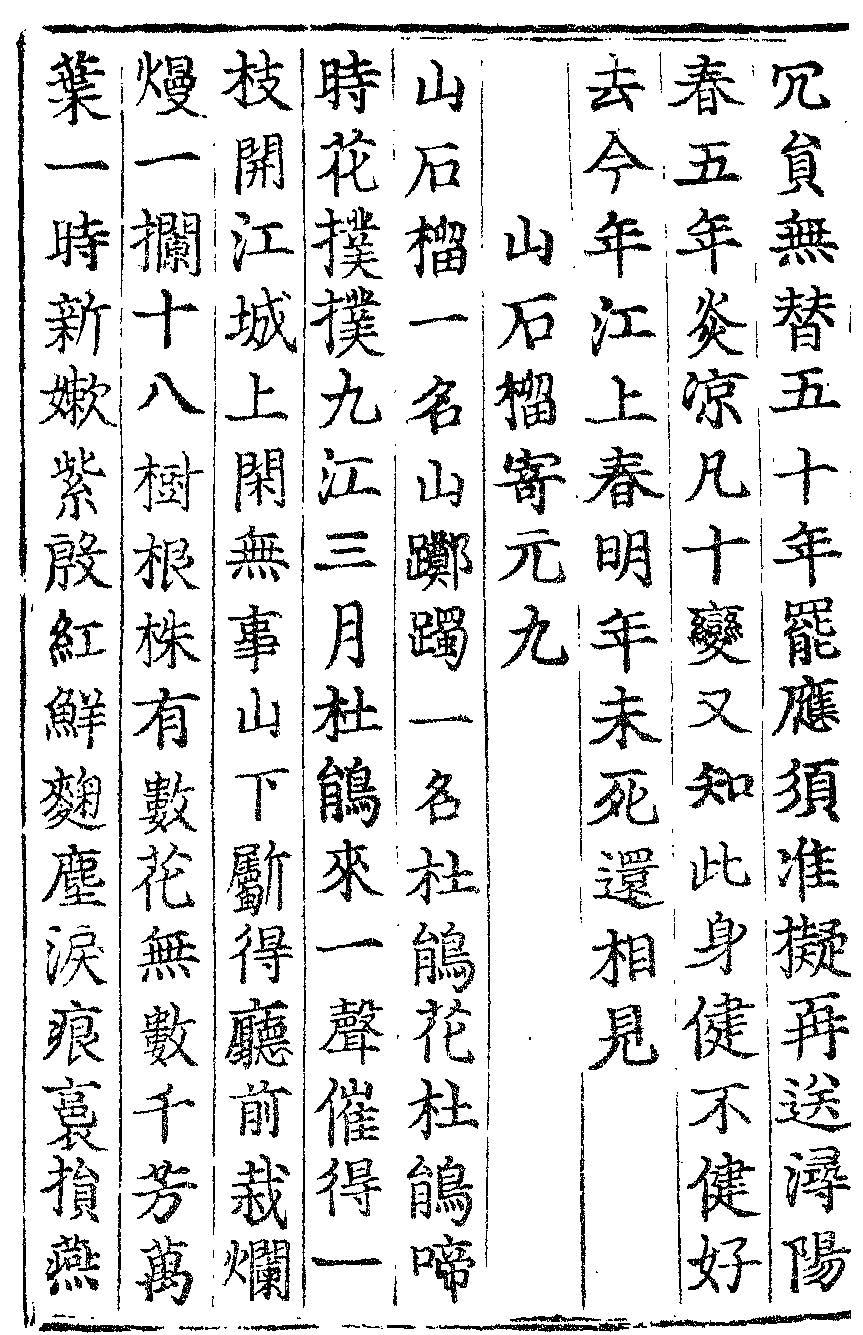 冗貟無替五十年罷應須准擬再送潯陽
春五年炎凉凡十變又知此身健不健好
去今年江上春明年未死還相見
山石榴寄元九
山石榴一名山躑躅一名杜鵑花杜鵑啼
時花撲撲九江三月杜鵑來一聲催得一
枝開江城上閑無事山下斸得廳前栽爛
熳一攔十八樹根株有數花無數千芳萬
葉一時新嫰紫殷紅鮮麴塵淚痕裛損燕